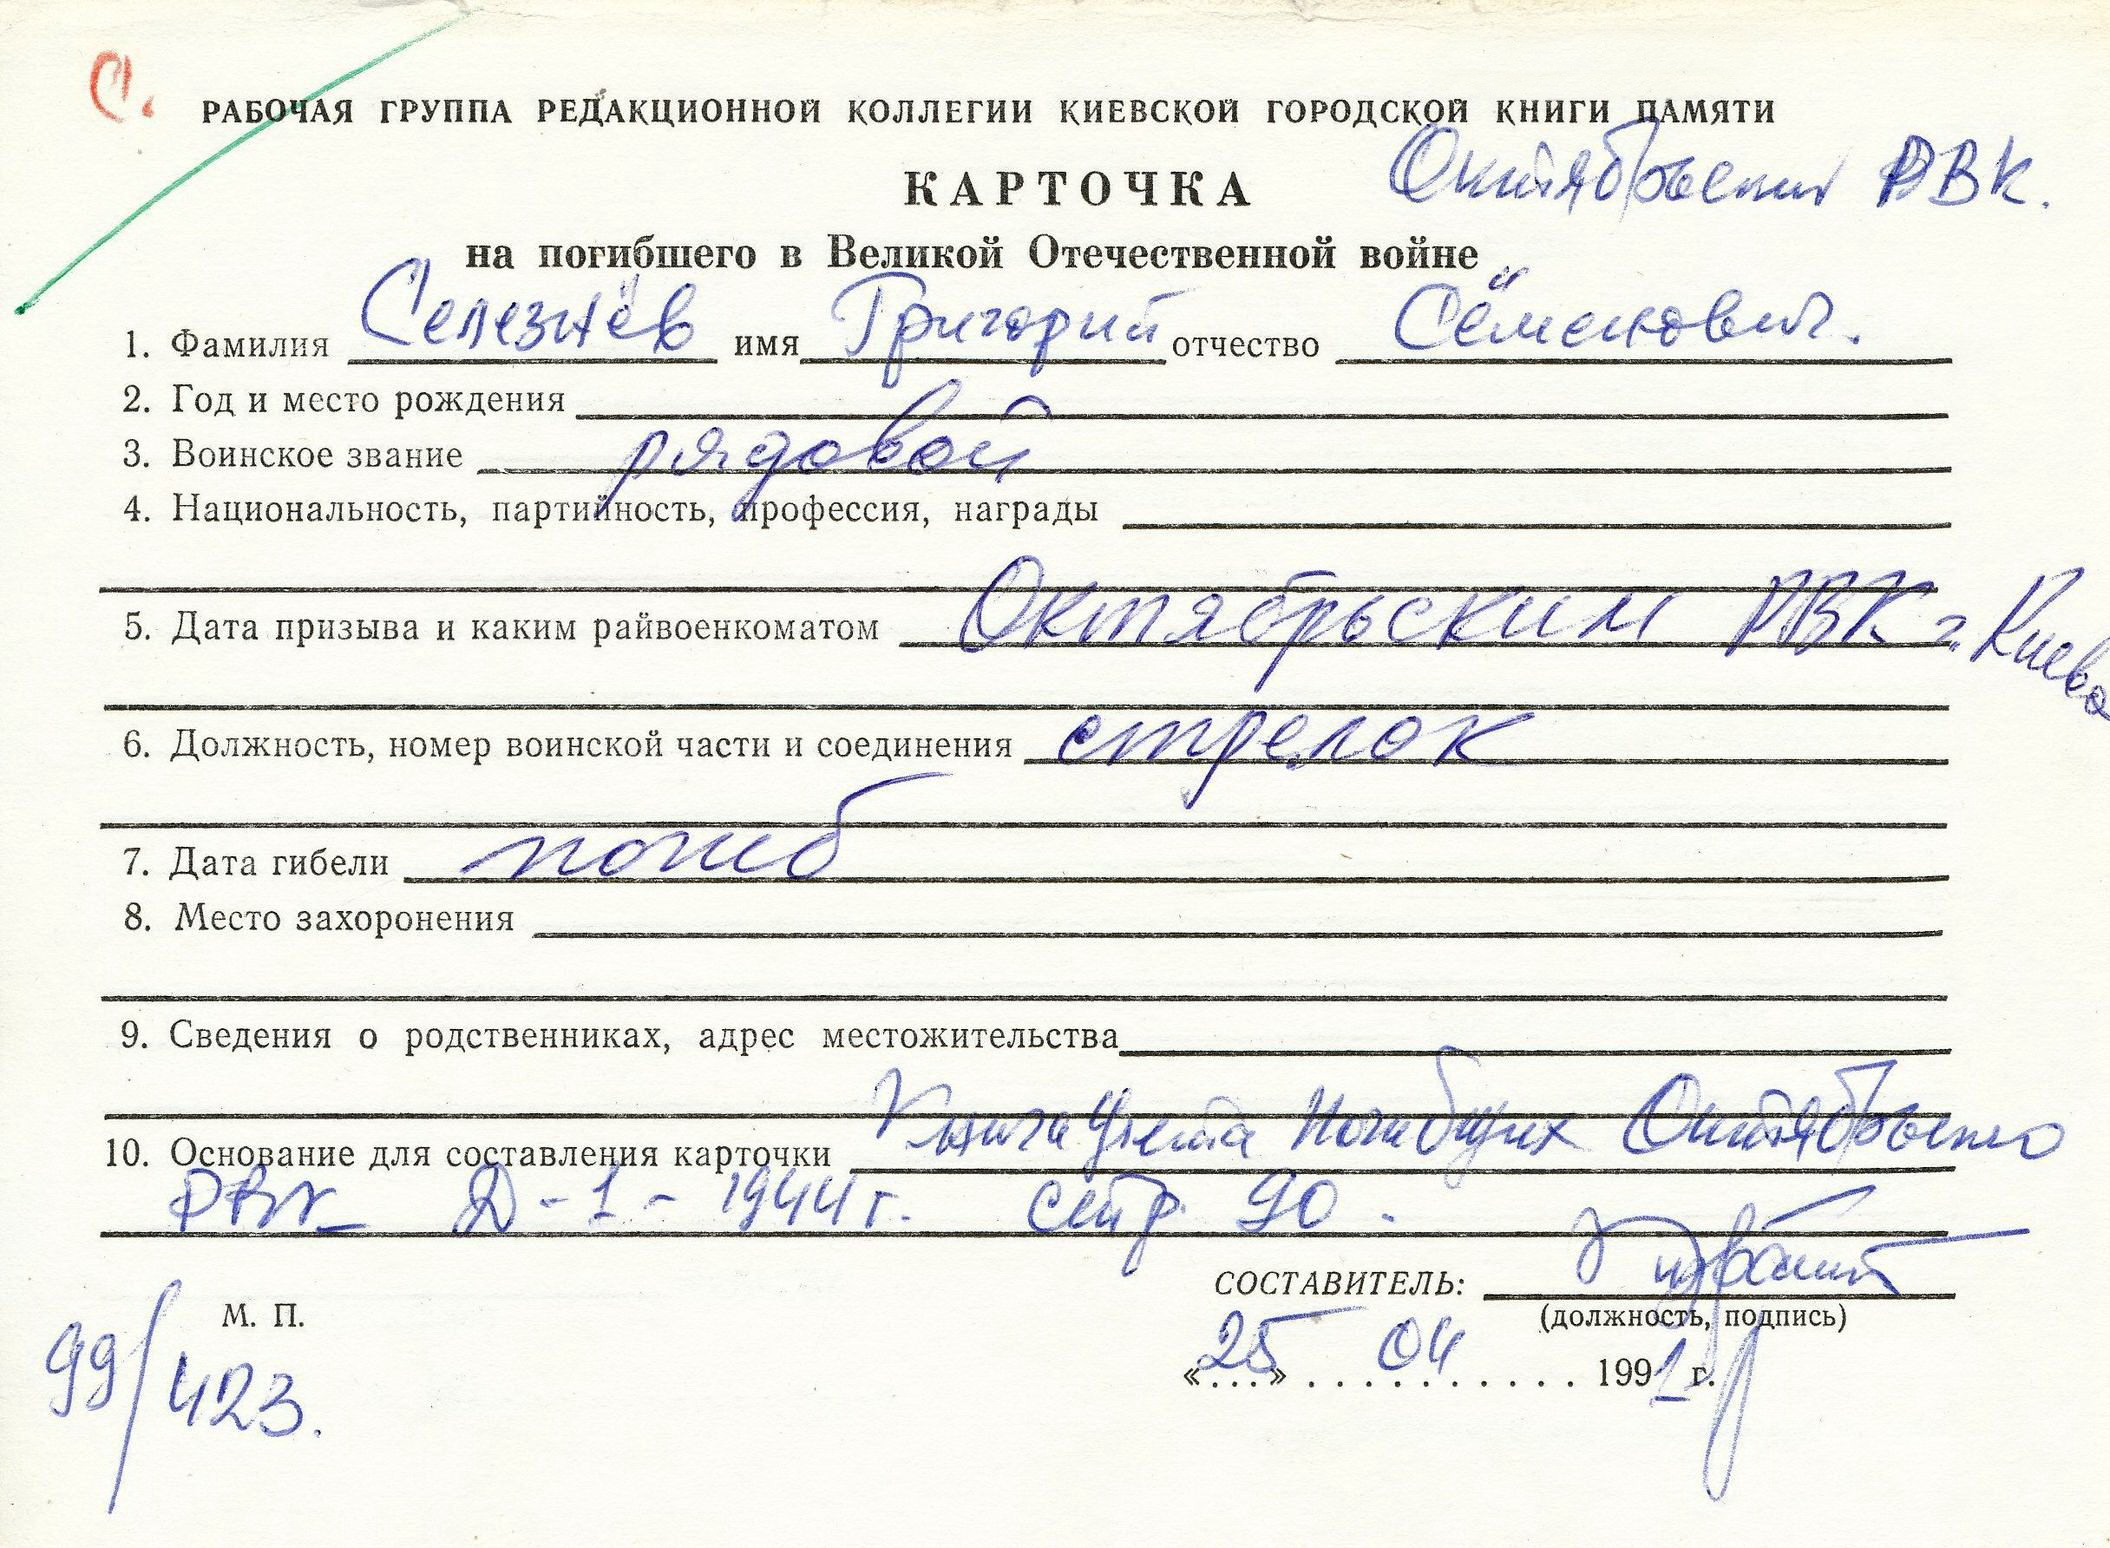 С.
РАБОЧАЯ ГРУППА РЕДАКЦИОННОЙ КОЛЛЕГИИ КИЕВСКОЙ ГОРОДСКОЙ КНИГИ ПАМЯТИ
Октябрьский РВК.
КАРТОЧКА
на погибшего в Великой Отечественной войне
1. Фамилия Селезнёв имя Григорий отчество Сёменович.
2. Год и место рождения
3. Воинское звание рядовой
4. Национальность, партийность, профессия, награды
5. Дата призыва и каким райвоенкоматом Октябрьским РВК г. Киева
6. Должность, номер воинской части и соединения стрелок
7. Дата гибели погиб
8. Место захоронения
9. Сведения о родственниках, адрес местожительства
10. Основание для составления карточки Книга учета Погибших Октябрьского
РВК Д-1-1944 г. стр. 90.
СОСТАВИТЕЛЬ:
М. П. (должность, подпись)
«25» 04 1991 г.
99/423.